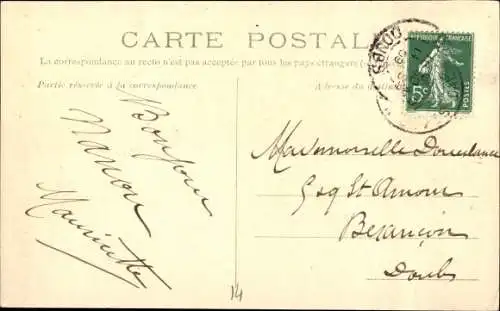 CARTE POSTALE
La correspondance au recto n'est pas acceptée par tous les pays étrangers
Partie réservée à la correspondance
Adresse du
RÉPUBLIQUE FRANÇAISE
5c
POSTES
Bonjour
Manon
Mauricette
Mademoiselle
St Amour
Besançon
Doubs
14